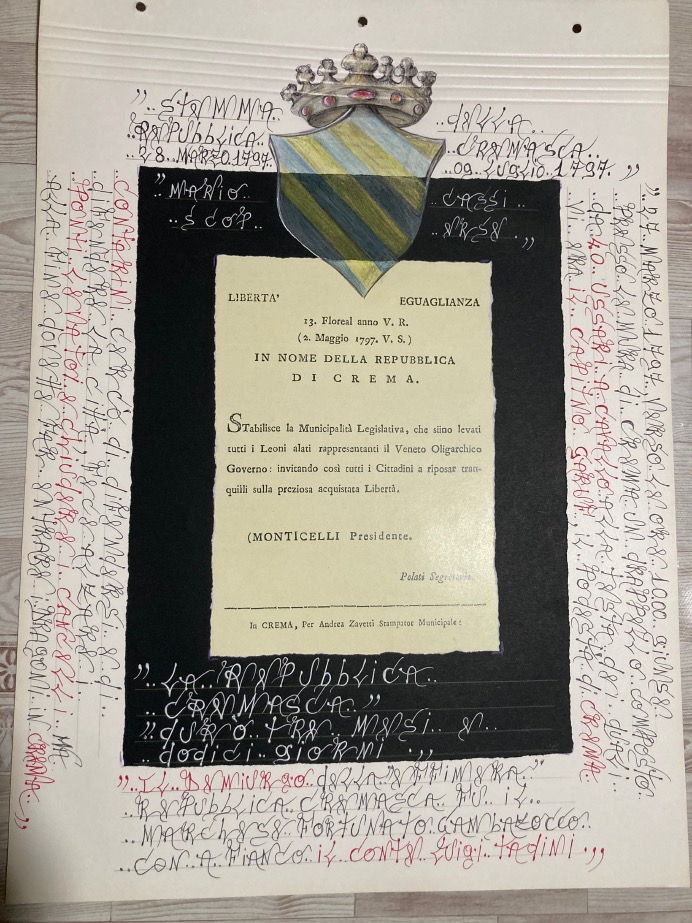 ”..STEMMA.. ..DELLA..
REPUBBLICA.. ..CREMASCA..
28. MARZO.1797. ..09. LUGLIO.1797...”
“ MARIO.. CASSI..
.. SCOP.. .. ERSE..”
LIBERTA' EGUAGLIANZA
13. Floreal anno V. R.
(2. Maggio 1797. V. S.)
IN NOME DELLA REPUBBLICA
DI CREMA.
STabilisce la Municipalità Legislativa, che siino levati
tutti i Leoni alati rappresentanti il Veneto Oligarchico
Governo: invitando così tutti i Cittadini a riposar tran-
quilli sulla preziosa acquistata Libertà.
(MONTICELLI Presidente.
Polati Segretario.
In CREMA, Per Andrea Zavetti Stampator Municipale:
”..LA..REPUBBLICA..
..CREMASCA..”
”DURÒ..TRE..MESI..E..
..dodici..giorni..,,
”..27.MARZO 1797.VERSO LE ORE 1000 GIUNSE
PRESSO LE MURA di CREMA UN DRAPPELLO COMPOSTO
da 40 USSARI A CAVALLO ALLA TESTA dei QUALI..
VI ERA IL CAPITANO, IL PODESTÀ di CREMA
CONTARINI CERCÒ di
di difendere LA CITTÀ, FECE ALZARE i
PONTI LEVATOI E CHIUDERE i CANCELLI.. MA
ALLA FINE DOVETTE FAR ENTRARE i DRAGONI IN CREMA..”
”..IL..DEMIURGO..dELLA..EFFIMERA..”
REPUBBLICA..CREMASCA..FU..IL..
MARCHESE..FORTUNATO.GAMBAZOCCO..
..CON.A.FIANCO..IL..CONTE..LUIGI..TADINI..,,